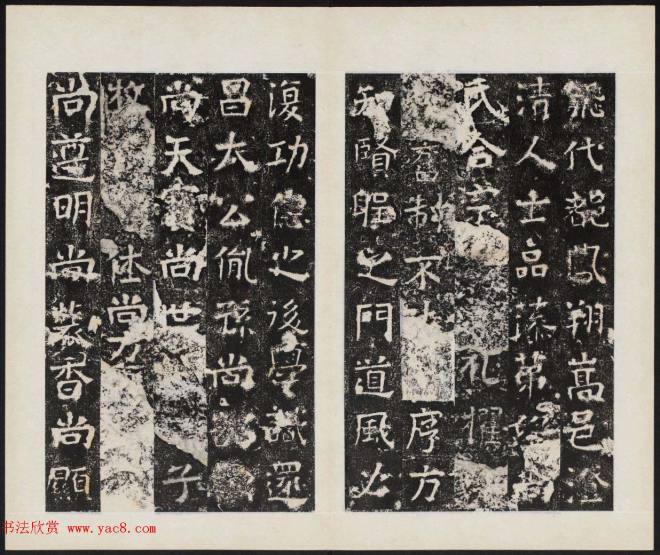 飛代都鳳翔嵩邑澄
清人士品藻第
氏合宗礼擢
舊制不序方
知賢之門道風必
復功德之後學識還
昌太公胤孫尚
尚天寶尚世子
牧休尚
尚遵明尚香尚顯
书法欣赏 www.yac8.com